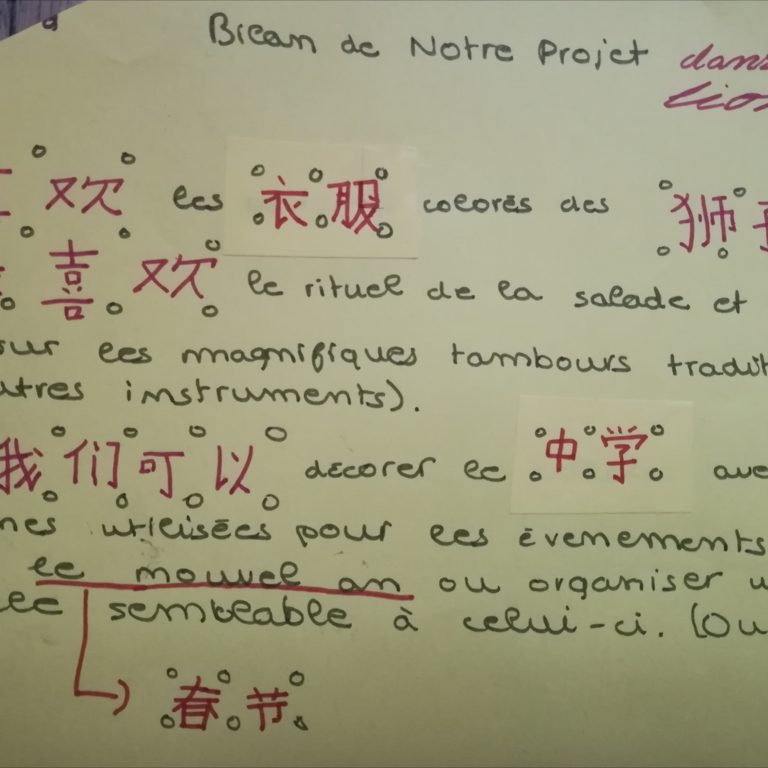 Bilan de Notre Projet dans
lion
欢 les 衣服 colorés des 狮
喜欢 le rituel de la salade et
sur les magnifiques tambours tradit
utres instruments).
我们可以 décorer le 中学 ave
nes utilisées pour les évenements
le nouvel an ou organiser u
lee semblable à celui-ci. (Ou
春节